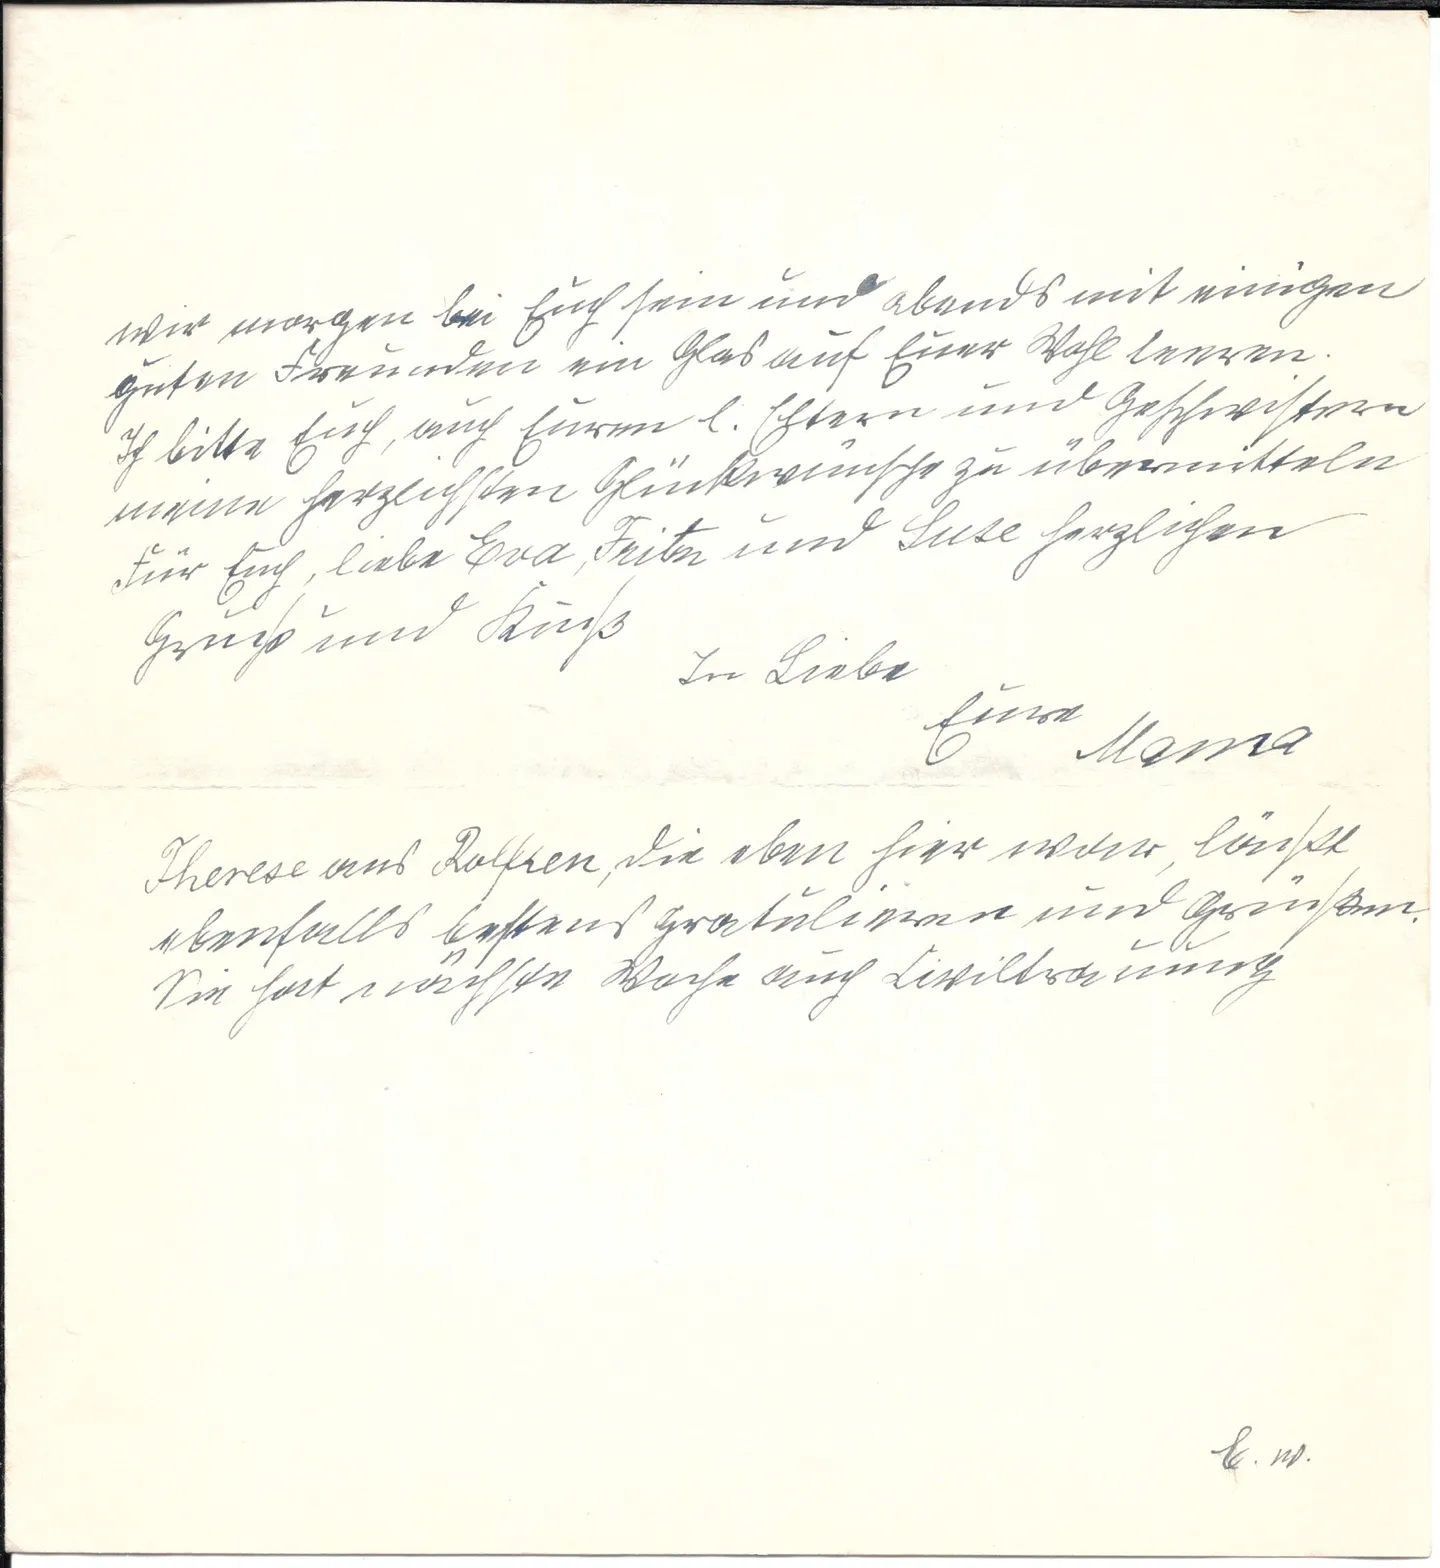 wir morgen bei Euch sein und abends mit einigen
guten Freunden ein Glas auf Euer Wohl leeren.
Ich bitte Euch, auch Euren l. Eltern und Geschwistern
meine herzlichsten Glückwünsche zu übermitteln
Für Euch, liebe Eva, Fritz und Suse herzlichen
Gruß und Kuß
In Liebe
Eure
Mama
Therese aus, die eben hier war, läußt
ebenfalls bestens gratulieren und grüßen.
Sie hat nächste Woche auch Civiltrauung